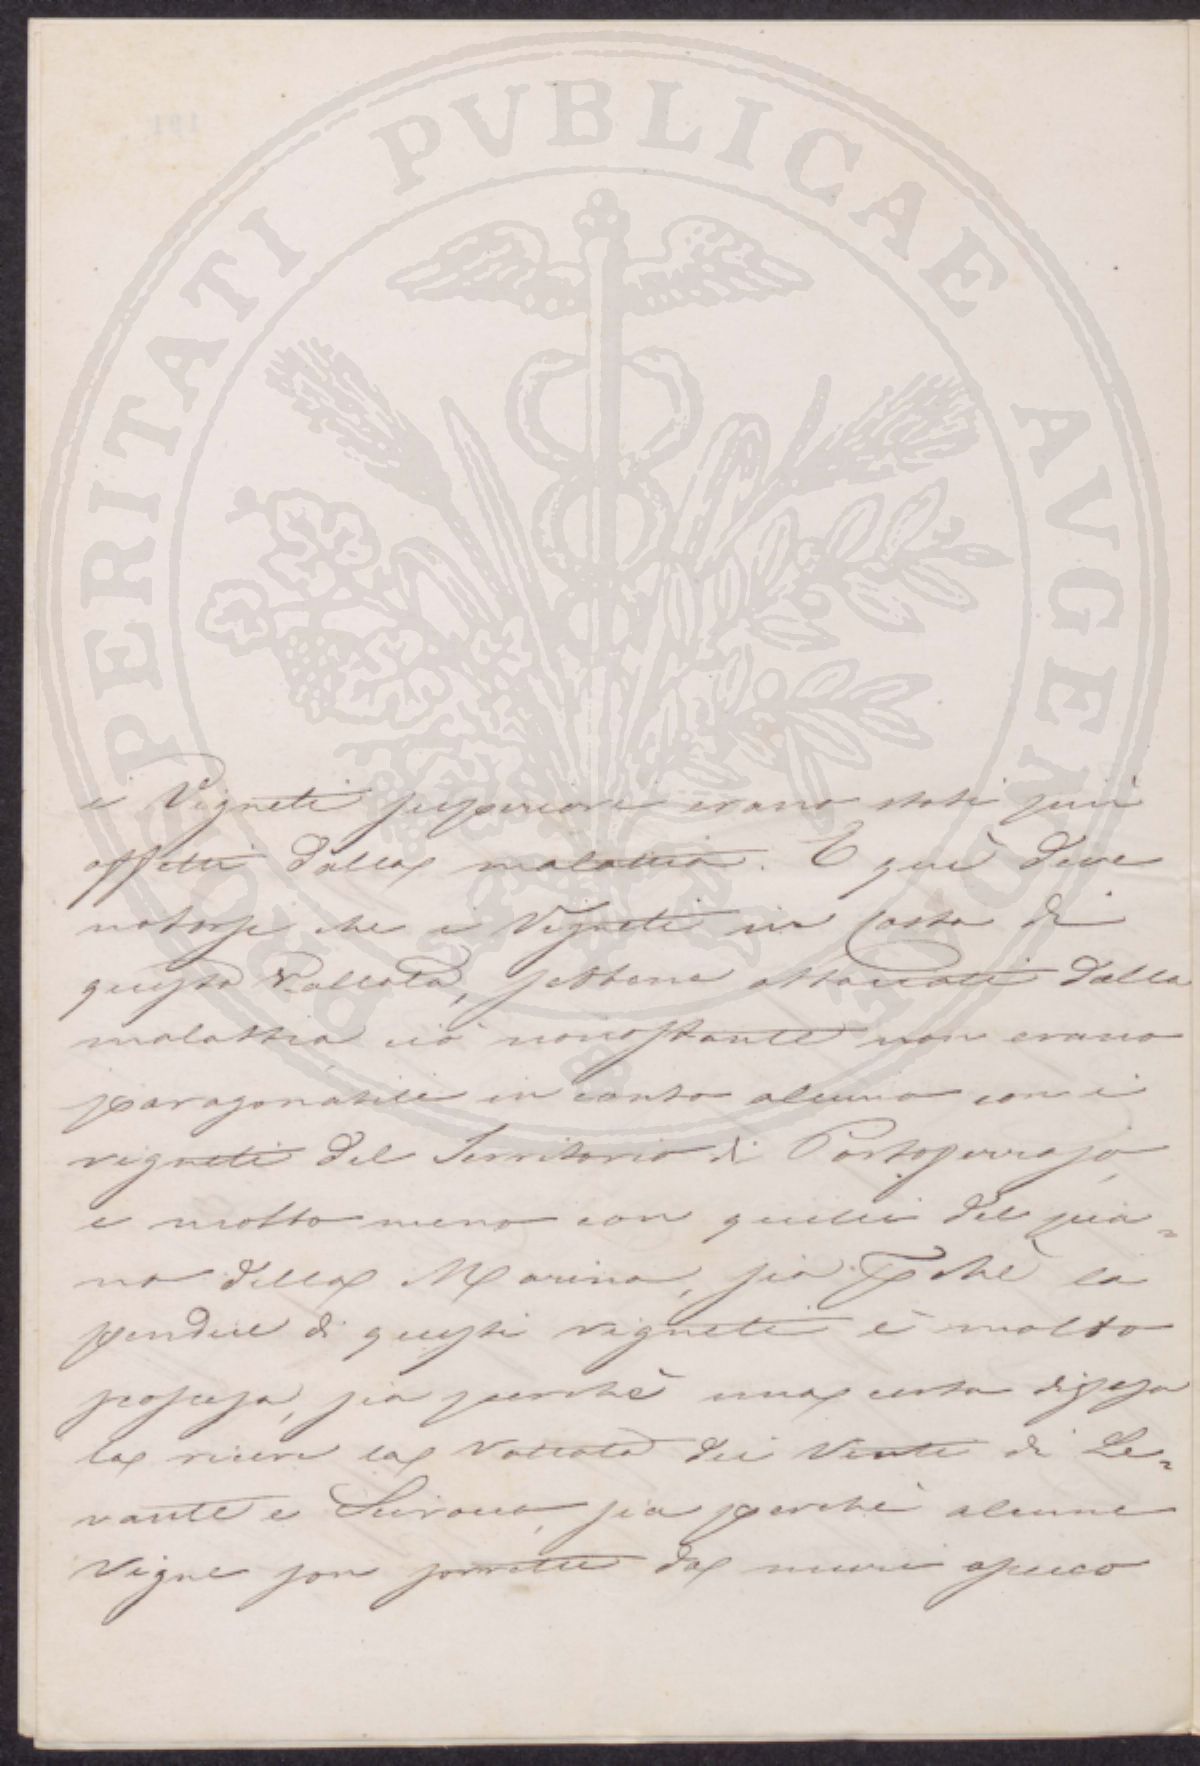 PROSPERITATI PVBLICAE AVGENDAE
i Vigneti superiori erano stati più
affetti dalla malattia. E qui deve
notarsi che i Vigneti in costa di
questa Vallata, sebbene attaccati dalla
malattia ciò nonostante non erano
paragonabili in conto alcuno con i
vigneti del Territorio di Portoferrajo,
e molto meno con quelli del pia=
no della Marina, sia perchè la
pendice di questi vigneti è molto
scoscesa, sia perchè una certa difesa
la riceve la Vallata dei Venti di Le=
vante e Scirocco, sia perchè alcune
Vigne son sorrette da muri a secco